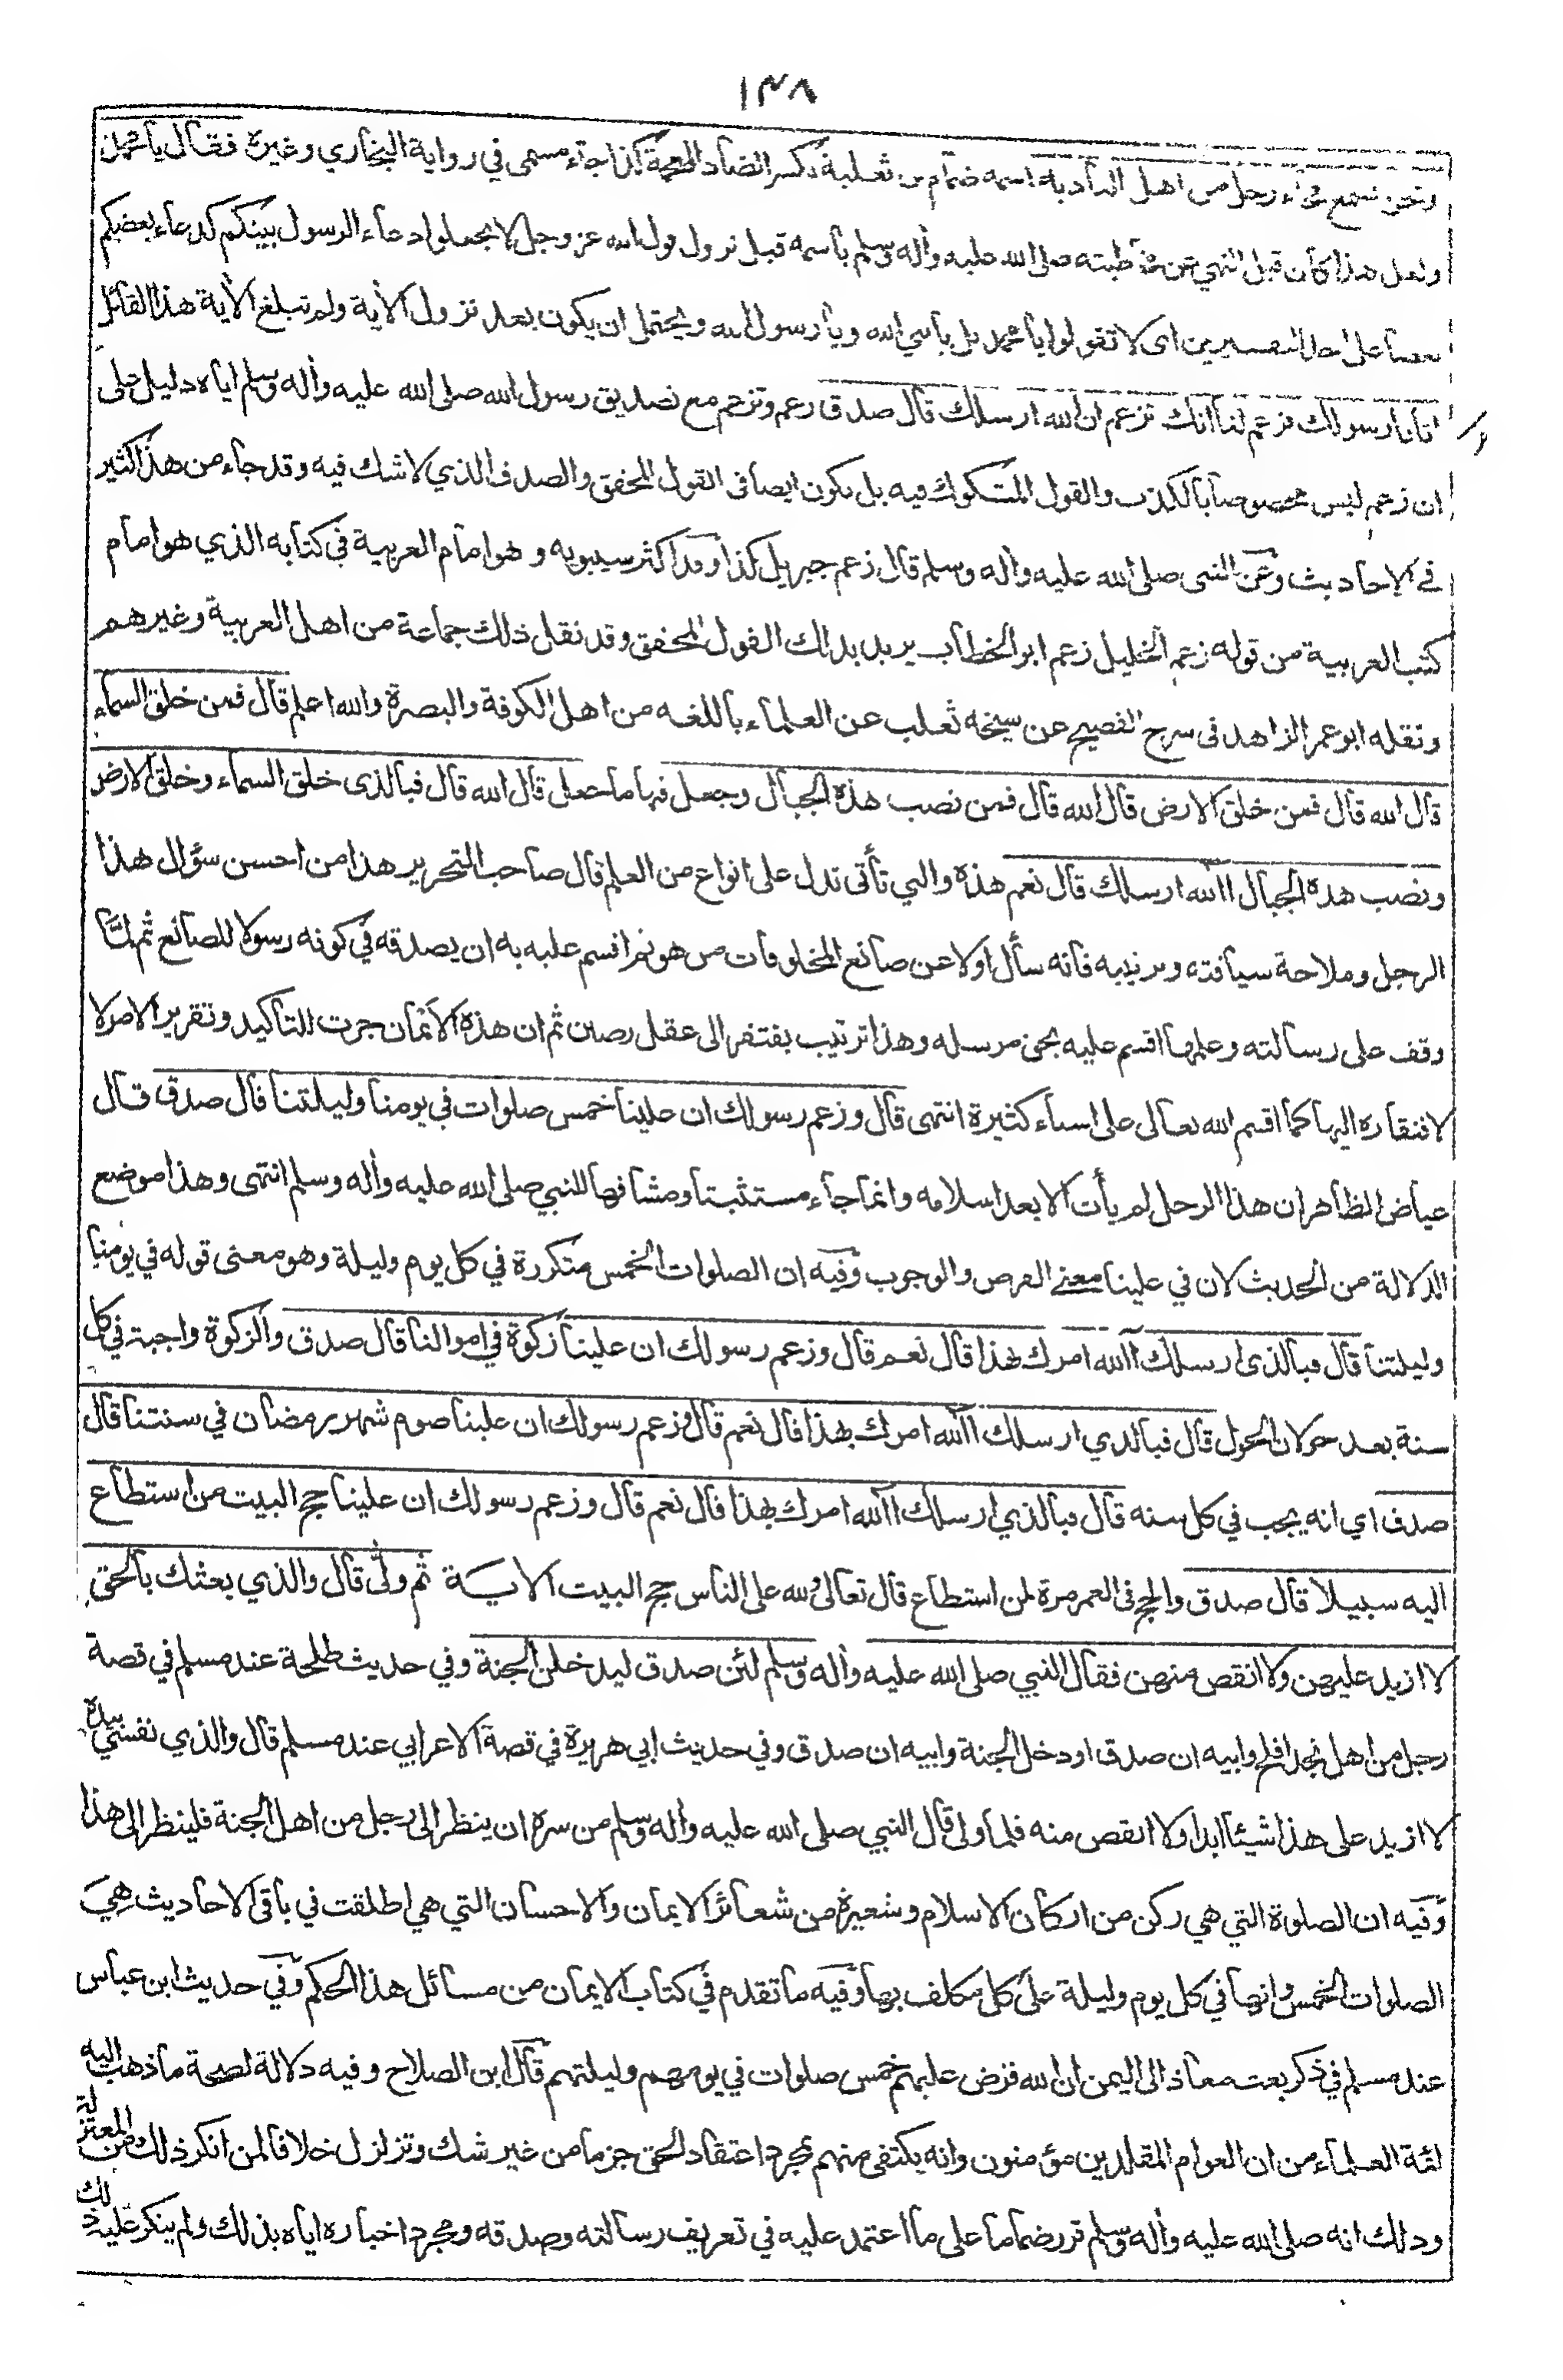 ١٣٨
ونحن نسمع فجاء رجل من اهل البادية اسمه ضمام بن ثعلبة بكسر الضاد المعجمة كذا جاء مسمى في رواية البخاري وغيره فقال يا محمد
ولعل هذا كان قبل النهي عن مخاطبته صلى الله عليه وأله وسلم باسمه قبل نزول قول الله عز وجل لا تجعلوا دعاء الرسول بينكم كدعاء بعضكم
بعضا على احد التفسيرين اى لا تقولوا يا محمد بل يا نبي الله ويا رسول الله ويحتمل ان يكون بعد نزول الأية ولم تبلغ الأية هذا القائل
اتانا رسولك فزعم لنا انك تزعم ان الله ارسلك قال صدق زعم وتزعم مع تصديق رسول الله صلى الله عليه وأله وسلم اياه دليل على
ان زعم ليس مخصوصا بالكذب والقول المشكوك فيه بل يكون ايضا فى القول المحقق والصدق الذي لا شك فيه وقد جاء من هذا كثير
في الاحاديث وعن النبى صلى الله عليه واله وسلم قال زعم جبريل كذا وقد اكثر سيبويه وهو امام العربية في كتابه الذي هو امام
كتب العربية من قوله زعم الخليل زعم ابو الخطاب يريد بذلك القول المحقق وقد نقل ذلك جماعة من اهل العربية وغيرهم
ونقله ابو عمر الزاهد فى شرح الفصيح عن شيخه ثعلب عن العلماء باللغه من اهل الكوفة والبصرة والله اعلم قال فمن خلق السماء
قال الله قال فمن خلق الارض قال الله قال فمن نصب هذه الجبال وجعل فيها ما جعل قال الله قال فبالذى خلق السماء وخلق الارض
ونصب هذه الجبال االله ارسلك قال نعم هذه والتي تأتى تدل على انواع من العلم قال صاحب التحرير هذا من احسن سؤال هذا
الرجل وملاحة سياقته وترتيبه فانه سأل اولا عن صانع المخلوقات من هو ثم اقسم عليه به ان يصدقه في كونه رسولا للصانع ثم لما
وقف على رسالته وعلمها اقسم عليه بحق مرسله وهذا ترتيب يفتقر الى عقل رصين ثم ان هذه الأيمان جرت للتاكيد وتقرير الامر لا
لافتقاره اليها كما اقسم الله تعالى على اشياء كثيرة انتهى قال وزعم رسولك ان علينا خمس صلوات في يومنا وليلتنا قال صدق قال
عياض الظاهر ان هذا الرجل لم يأت الا بعد اسلامه وانما جاء مستثبتا ومشافها للنبي صلى الله عليه وأله وسلم انتهى وهذا موضع
الدلالة من الحديث لان في علينا معنى الفرض والوجوب وفيه ان الصلوات الخمس متكررة في كل يوم وليلة وهو معنى قوله في يومنا
وليلتنا قال فبالذى ارسلك آالله امرك بهذا قال نعم قال وزعم رسولك ان علينا زكوة في اموالنا قال صدق والزكوة واجبة في كل
سنة بعد حولان الحول قال فبالذي ارسلك االله امرك بهذا قال نعم قال وزعم رسولك ان علينا صوم شهر رمضان في سنتنا قال
صدق اي انه يجب في كل سنه قال فبالذي ارسلك االله امرك بهذا قال نعم قال وزعم رسولك ان علينا حج البيت من استطاع
اليه سبيلا قال صدق والحج فى العمر مرة لمن استطاع قال تعالى ولله على الناس حج البيت الاية ثم ولّى قال والذي بعثك بالحق
لا ازيد عليهن ولا انقص منهن فقال النبي صلى الله عليه وأله وسلم لئن صدق ليدخلن الجنة وفي حديث طلحة عند مسلم في قصة
رجل من اهل نجد افلح وابيه ان صدق او دخل الجنة وابيه ان صدق وفي حديث ابي هريرة في قصة الاعرابي عند مسلم قال والذي نفسي بيده
لا ازيد على هذا شيئا ابدا ولا انقص منه فلما ولى قال النبي صلى الله عليه وأله وسلم من سره ان ينظر الى رجل من اهل الجنة فلينظر الى هذا
وفيه ان الصلوة التي هي ركن من اركان الاسلام وشعيرة من شعائر الايمان والاحسان التي هي اطلقت في باقى الاحاديث هي
الصلوات الخمس وانها في كل يوم وليلة على كل مكلف بها وفيه ما تقدم في كتاب الايمان من مسائل هذا الحكم وفي حديث ابن عباس
عند مسلم في ذكر بعث معاذ الى اليمن ان الله فرض عليهم خمس صلوات في يومهم وليلتهم قال ابن الصلاح وفيه دلالة لصحة ما ذهب اليه
لئة العلماء من ان العوام المقلدين مؤمنون وانه يكتفى منهم بمجرد اعتقاد الحق جزما من غير شك وتزلزل خلافا لمن انكر ذلك من المعتزلة
وذلك انه صلى الله عليه وأله وسلم قرر ضماما على ما اعتمد عليه في تعريف رسالته وصدقه ومجرد اخباره اياه بذلك ولم ينكر عليه ذلك